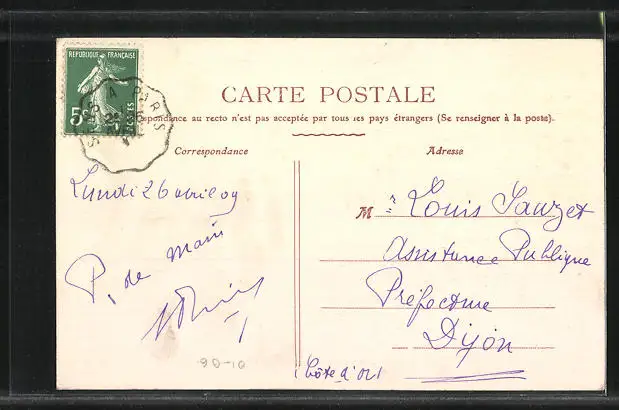 REPUBLIQUE FRANÇAISE
5c
POSTES
A PARIS
CARTE POSTALE
pondance au recto n'est pas acceptée par tous les pays étrangers (Se renseigner à la poste).
Correspondance
Adresse
Lundi 26 avril 09
P. de main
M r Louis Sauzet
Assistance Publique
Préfecture
Dijon
(Côte d'Or)
90-10